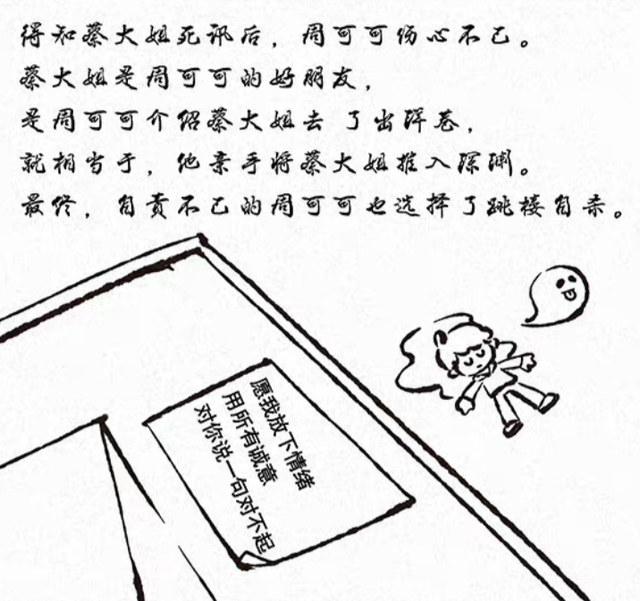 得知蔡大姐死讯后，周可可伤心不已。
蔡大姐是周可可的好朋友，
是周可可介绍蔡大姐去了出洋巷，
就相当于，他亲手将蔡大姐推入深渊。
最终，自责不已的周可可也选择了跳楼自杀。
愿我放下情绪
用所有诚意
对你说一句对不起